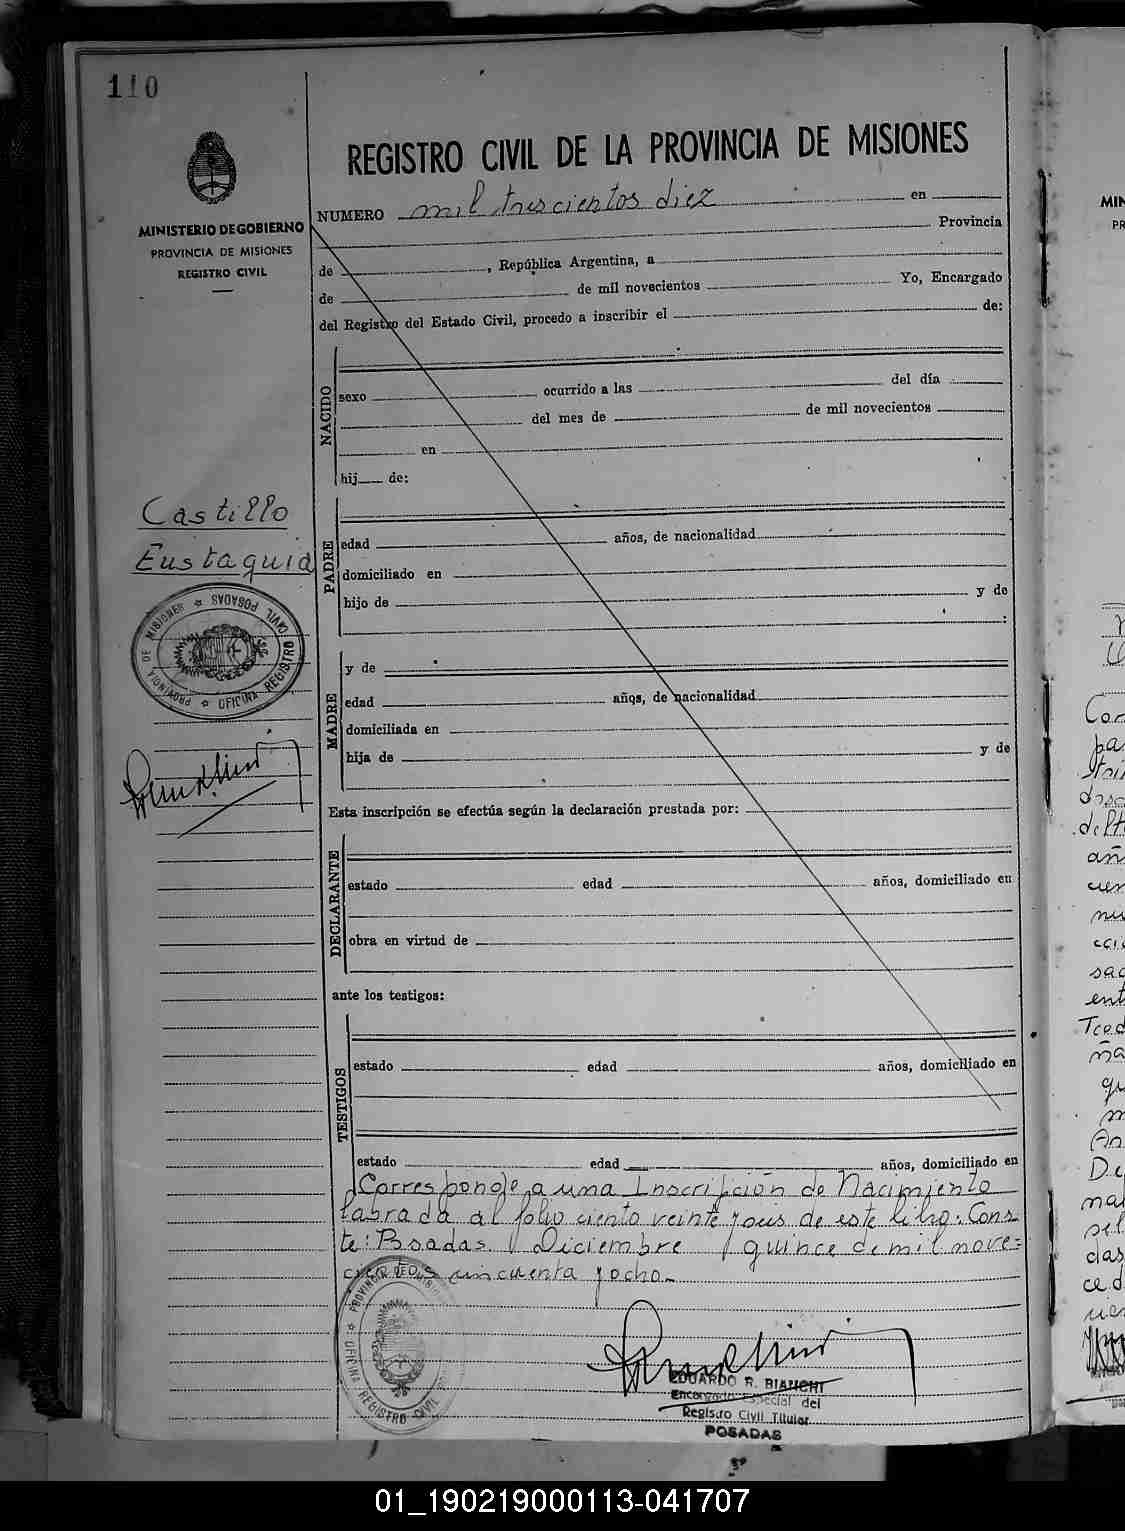 110
REGISTRO CIVIL DE LA PROVINCIA DE MISIONES
MINISTERIO DE GOBIERNO
PROVINCIA DE MISIONES
REGISTRO CIVIL
NUMERO mil trescientos diez en
Provincia
de , República Argentina, a
de de mil novecientos Yo, Encargado
del Registro del Estado Civil, procedo a inscribir el de:
NACIDO
sexo ocurrido a las del día
del mes de de mil novecientos
en
hij de:
Castillo
Eustaquia
PROVINCIA DE MISIONES ☆ OFICINA REGISTRO CIVIL POSADAS ☆
PADRE
edad años, de nacionalidad
domiciliado en
hijo de y de
:
MADRE
y de
edad años, de nacionalidad
domiciliada en
hija de y de
Esta inscripción se efectúa según la declaración prestada por:
DECLARANTE
estado edad años, domiciliado en
obra en virtud de
ante los testigos:
TESTIGOS
estado edad años, domiciliado en
estado edad años, domiciliado en
Corresponde a una Inscripción de Nacimiento
labrada al folio ciento veinte y seis de este libro. Cons
te: Posadas Diciembre quince de mil nove=
cientos cincuenta y ocho.
PROVINCIA DE MISIONES
OFICINA REGISTRO CIVIL
EDUARDO R. BIANCHI
Encargado Especial del
Registro Civil Titular
POSADAS
01_190219000113-041707